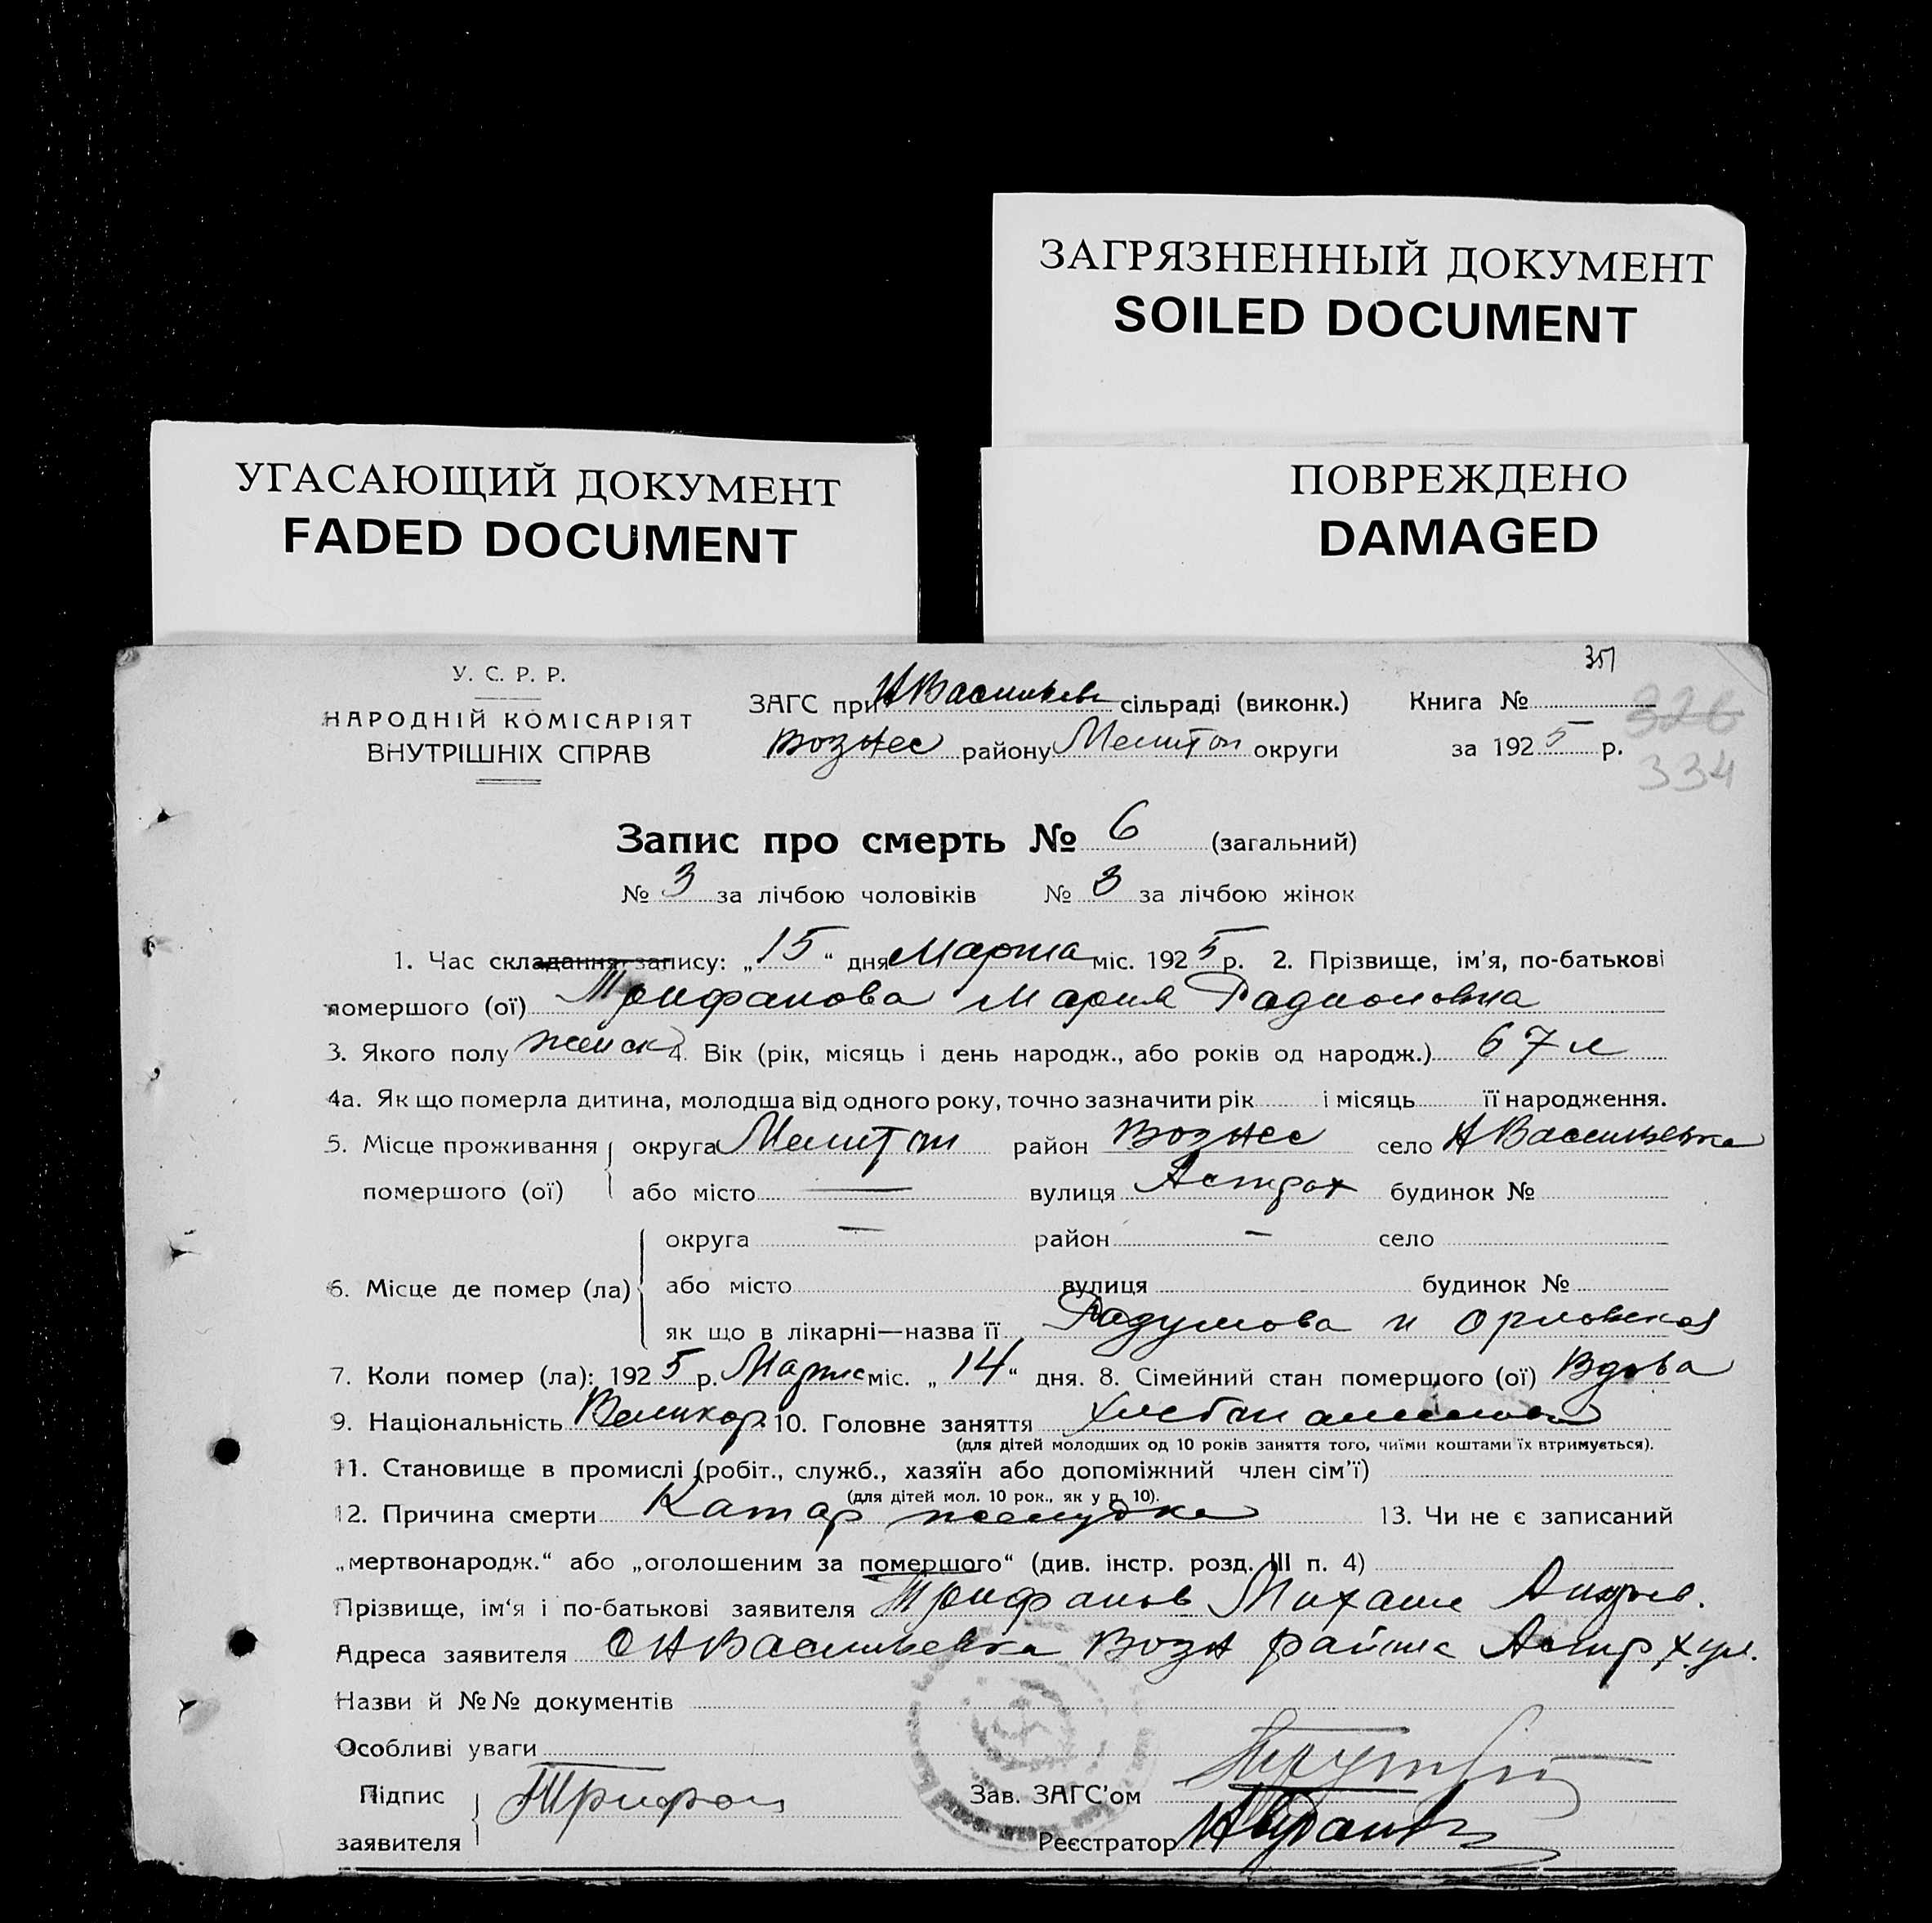 ЗАГРЯЗНЕННЫЙ ДОКУМЕНТ
SOILED DOCUMENT
УГАСАЮЩИЙ ДОКУМЕНТ
FADED DOCUMENT
ПОВРЕЖДЕНО
DAMAGED
351
У. С. Р. Р.
НАРОДНІЙ КОМІСАРІЯТ
ВНУТРІШНІХ СПРАВ
ЗАГС при НВасильев сільраді (виконк.) Книга №
326
Вознес району Мелитоп округи за 1925 р.
334
Запис про смерть № 6 (загальний)
№ 3 за лічбою чоловіків № 3 за лічбою жінок
1. Час складання запису: „15“ дня Марта міс. 1925 р. 2. Прізвище, ім'я, по-батькові
помершого (ої) Трифанова Мария Радионовна
3. Якого полу женск 4. Вік (рік, місяць і день народж., або років од народж.) 67 л
4а. Як що померла дитина, молодша від одного року, точно зазначити рік і місяць її народження.
5. Місце проживання округа Мелитоп район Вознес село НВасильевка
помершого (ої) або місто — вулиця Астрах будинок №
округа — район — село
6. Місце де помер (ла) або місто вулиця будинок №
як що в лікарні—назва її Радумова и Орловской
7. Коли помер (ла): 1925 р. Марта міс. „14“ дня. 8. Сімейний стан помершого (ої) Вдова
9. Національність Великор. 10. Головне заняття
(для дітей молодших од 10 років заняття того, чиїми коштами їх втримується).
11. Становище в промислі (робіт., служб., хазяїн або допоміжний член сім'ї)
(для дітей мол. 10 рок., як у п. 10).
12. Причина смерти Катар желудка 13. Чи не є записаний
„мертвонародж.“ або „оголошеним за помершого“ (див. інстр. розд. III п. 4)
Прізвище, ім'я і по-батькові заявителя Трифанов Михаил Андреев.
Адреса заявителя НВасильевка Возн района Астрх ул.
Назви й №№ документів
Особливі уваги
Підпис Трифон Зав. ЗАГС'ом
заявителя Реєстратор